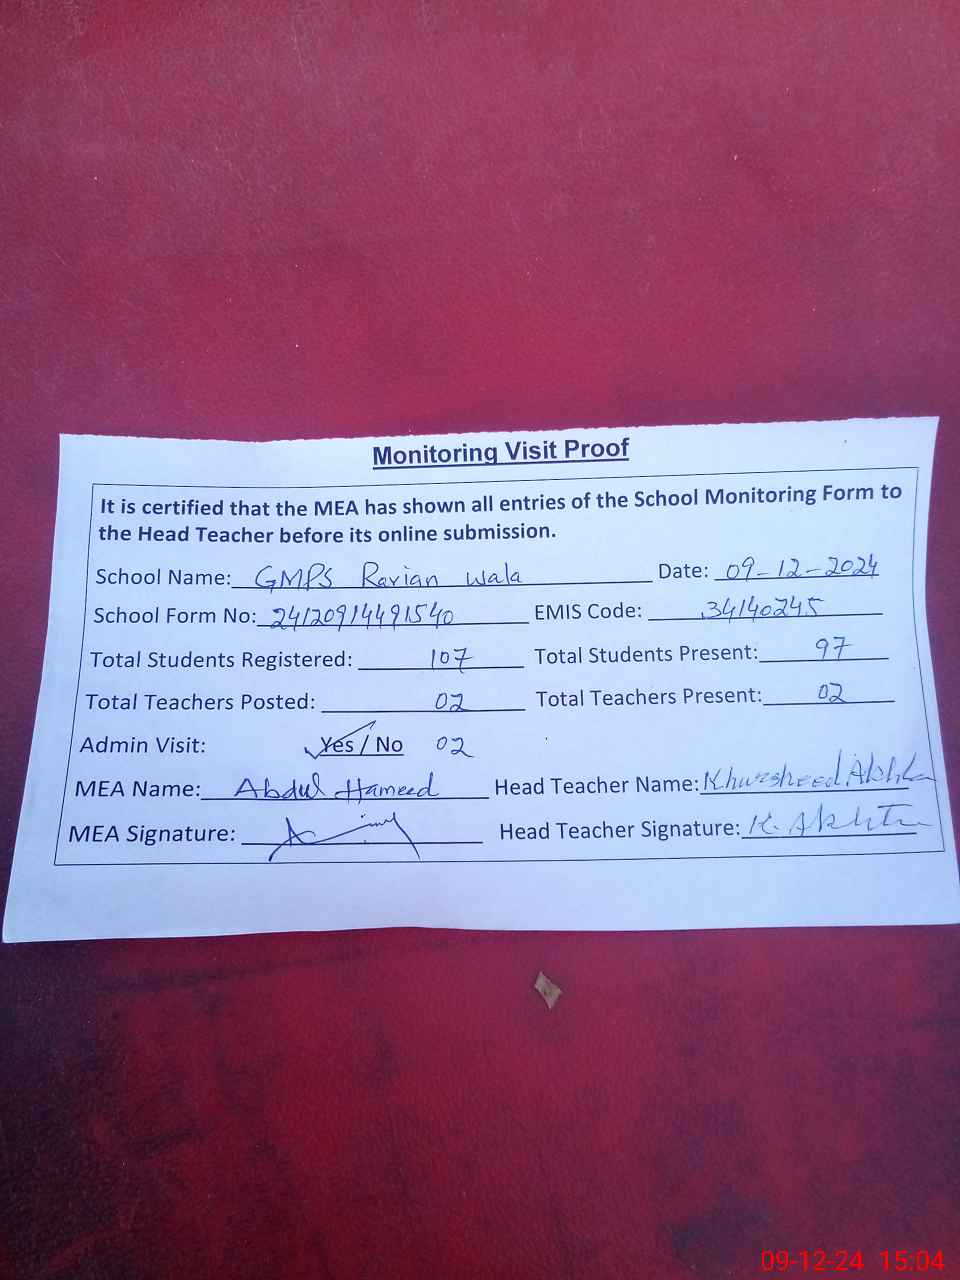 Monitoring Visit Proof
It is certified that the MEA has shown all entries of the School Monitoring Form to
the Head Teacher before its online submission.
School Name: GMPS Ravian wala Date: 09-12-2024
School Form No: 24120914491540 EMIS Code: 34140245
Total Students Registered: 107 Total Students Present: 97
Total Teachers Posted: 02 Total Teachers Present: 02
Admin Visit: Yes / No 02
MEA Name: Abdul Hameed Head Teacher Name: Khursheed Akhtar
MEA Signature: Head Teacher Signature: K. Akhtar
09-12-24 15:04